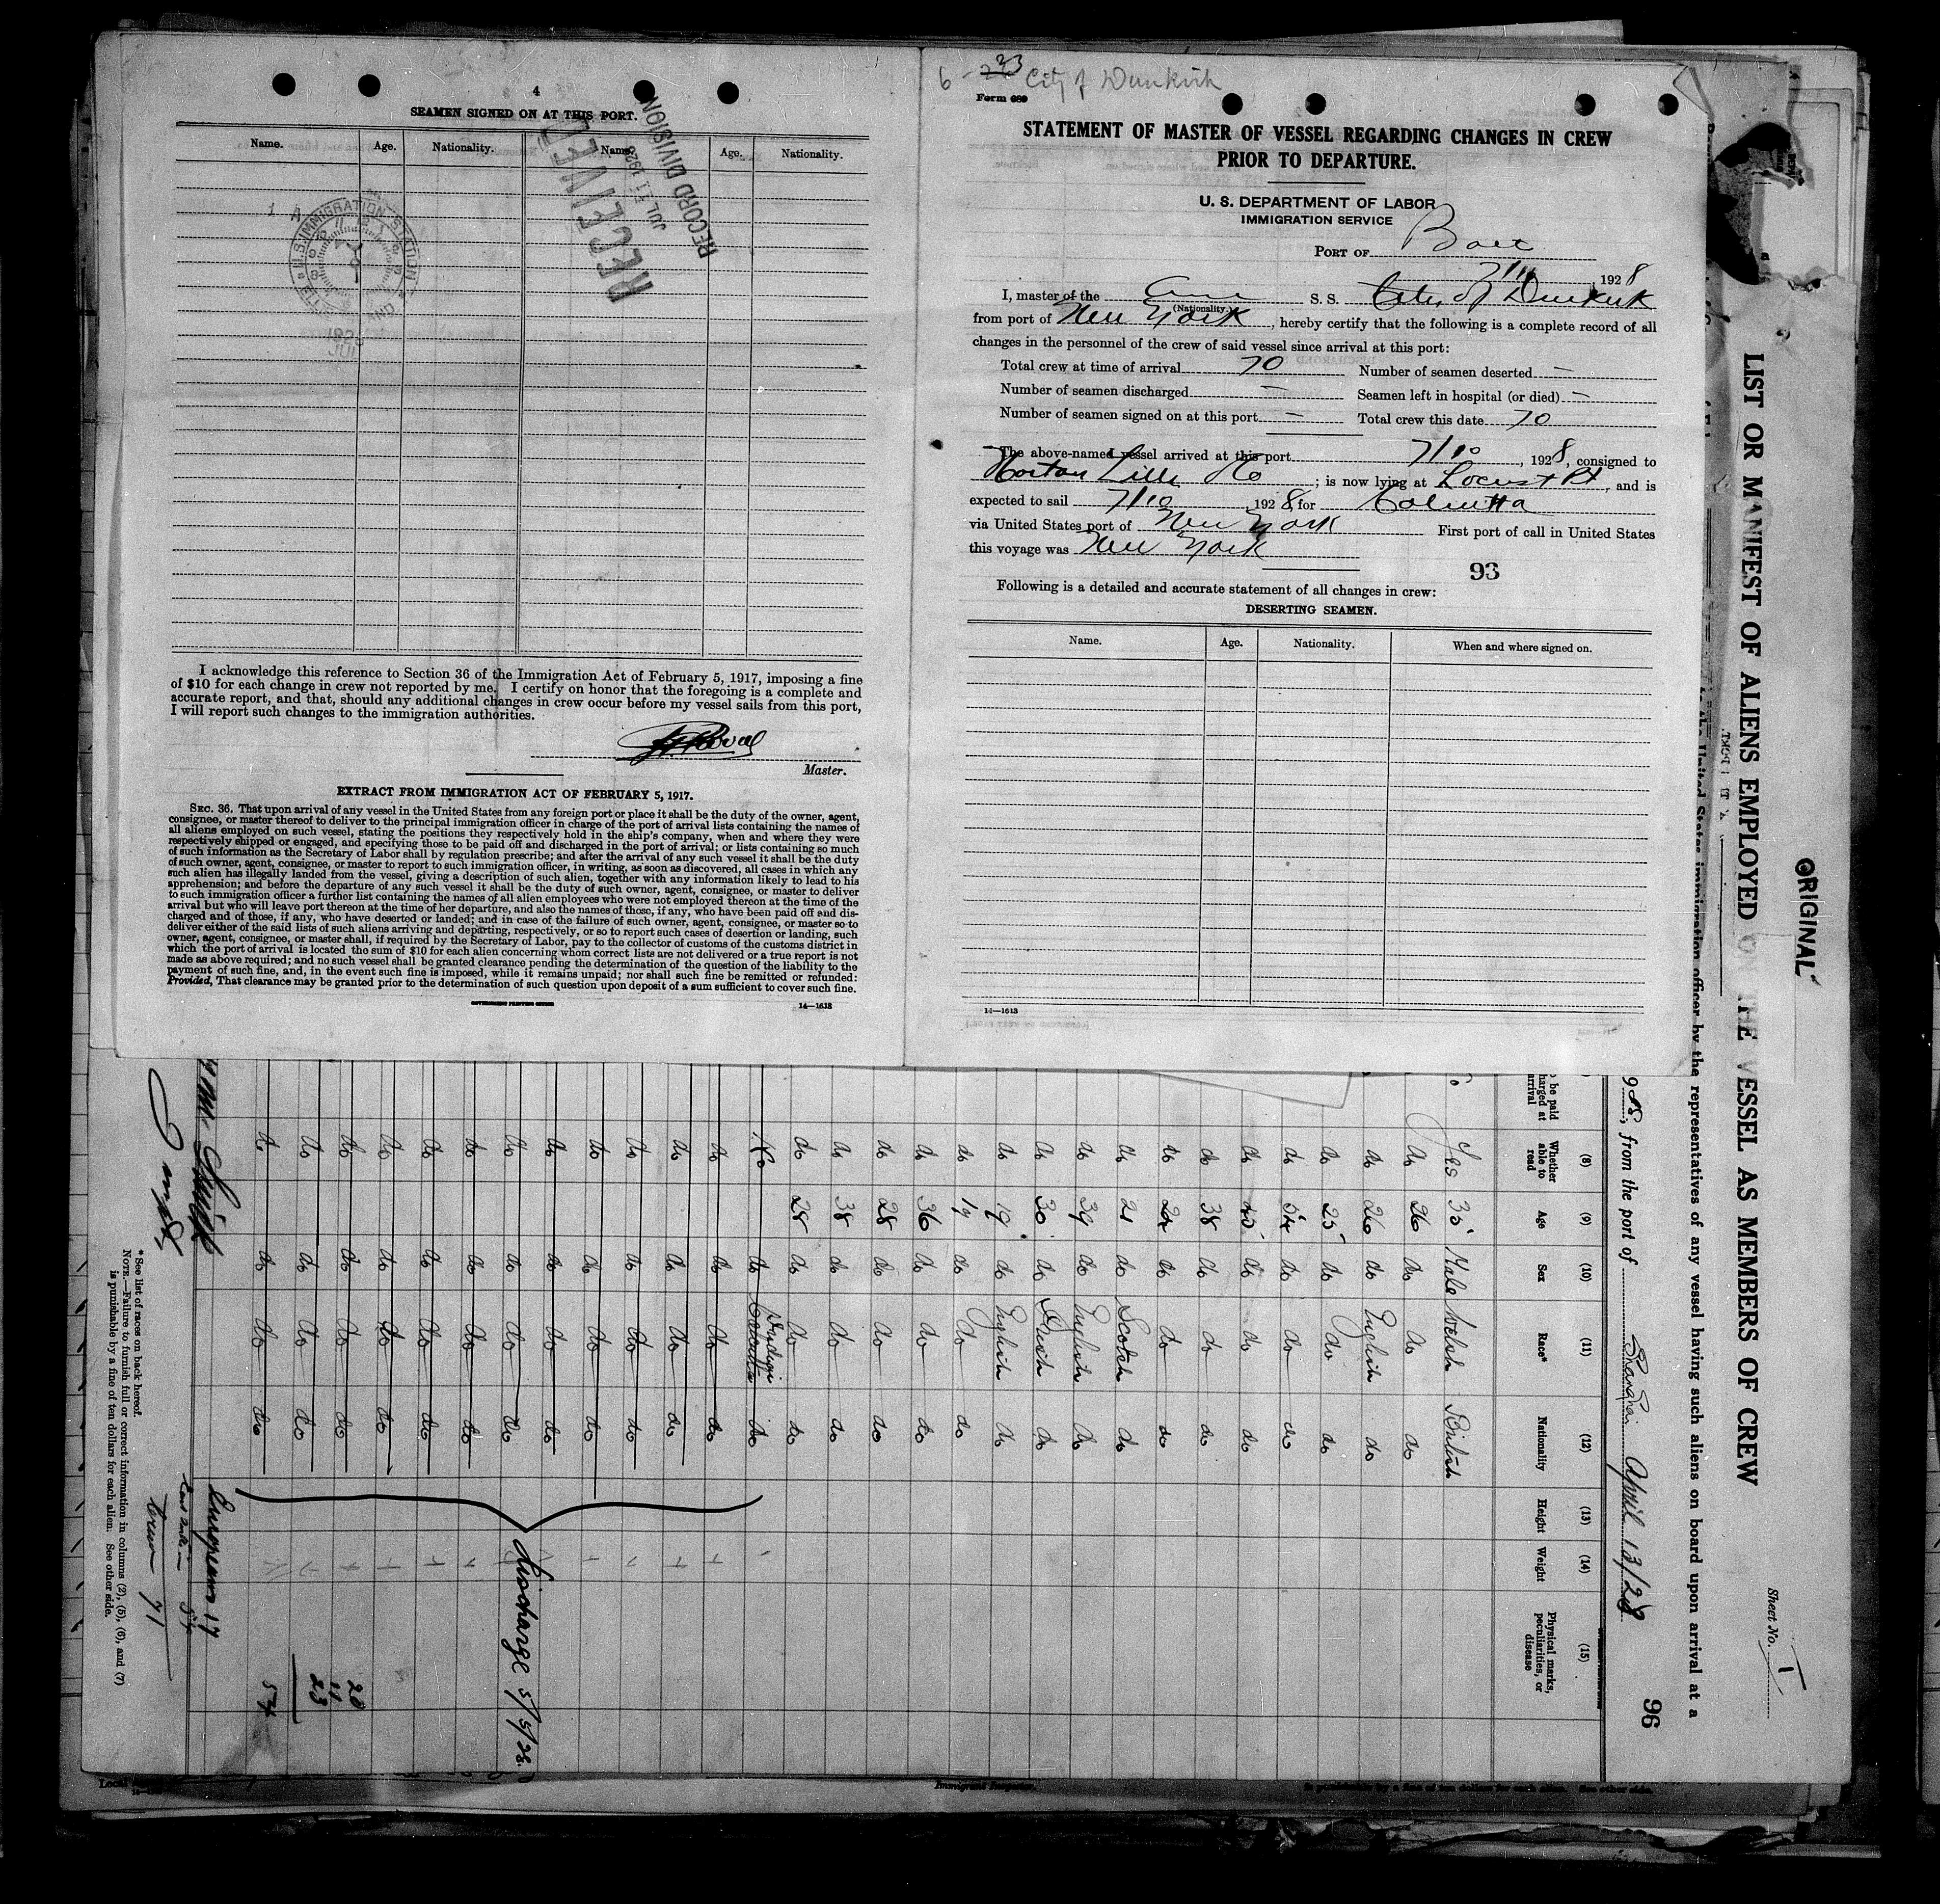 4
SEAMEN SIGNED ON AT THIS PORT.
Name. Age. Nationality. Name. Age. Nationality.
RECEIVED
JUL 1928
RECORD DIVISION
U.S. IMMIGRATION STATION
I acknowledge this reference to Section 36 of the Immigration Act of February 5, 1917, imposing a fine
of $10 for each change in crew not reported by me. I certify on honor that the foregoing is a complete and
accurate report, and that, should any additional changes in crew occur before my vessel sails from this port,
I will report such changes to the immigration authorities.
Master.
EXTRACT FROM IMMIGRATION ACT OF FEBRUARY 5, 1917.
SEC. 36. That upon arrival of any vessel in the United States from any foreign port or place it shall be the duty of the owner, agent,
consignee, or master thereof to deliver to the principal immigration officer in charge of the port of arrival lists containing the names of
all aliens employed on such vessel, stating the positions they respectively hold in the ship's company, when and where they were
respectively shipped or engaged, and specifying those to be paid off and discharged in the port of arrival; or lists containing so much
of such information as the Secretary of Labor shall by regulation prescribe; and after the arrival of any such vessel it shall be the duty
of such owner, agent, consignee, or master to report to such immigration officer, in writing, as soon as discovered, all cases in which any
such alien has illegally landed from the vessel, giving a description of such alien, together with any information likely to lead to his
apprehension; and before the departure of any such vessel it shall be the duty of such owner, agent, consignee, or master to deliver
to such immigration officer a further list containing the names of all alien employees who were not employed thereon at the time of the
arrival but who will leave port thereon at the time of her departure, and also the names of those, if any, who have been paid off and dis-
charged and of those, if any, who have deserted or landed; and in case of the failure of such owner, agent, consignee, or master so to
deliver either of the said lists of such aliens arriving and departing, respectively, or so to report such cases of desertion or landing, such
owner, agent, consignee, or master shall, if required by the Secretary of Labor, pay to the collector of customs of the customs district in
which the port of arrival is located the sum of $10 for each alien concerning whom correct lists are not delivered or a true report is not
made as above required; and no such vessel shall be granted clearance pending the determination of the question of the liability to the
payment of such fine, and, in the event such fine is imposed, while it remains unpaid; nor shall such fine be remitted or refunded:
Provided, That clearance may be granted prior to the determination of such question upon deposit of a sum sufficient to cover such fine.
GOVERNMENT PRINTING OFFICE 14—1613
6 - 23 City of Dunkirk
Form 689
STATEMENT OF MASTER OF VESSEL REGARDING CHANGES IN CREW
PRIOR TO DEPARTURE.
U. S. DEPARTMENT OF LABOR
IMMIGRATION SERVICE
PORT OF Balt
7/11, 1928
I, master of the S. S. City of Dunkirk
(Nationality.)
from port of New York, hereby certify that the following is a complete record of all
changes in the personnel of the crew of said vessel since arrival at this port:
Total crew at time of arrival 70 Number of seamen deserted —
Number of seamen discharged — Seamen left in hospital (or died) —
Number of seamen signed on at this port — Total crew this date 70
The above-named vessel arrived at this port 7/10, 1928, consigned to
Norton Lilly & Co; is now lying at Locust Pt, and is
expected to sail 7/10 1928, for Calcutta
via United States port of New York First port of call in United States
this voyage was New York
93
Following is a detailed and accurate statement of all changes in crew:
DESERTING SEAMEN.
Name. Age. Nationality. When and where signed on.
14—1613
ORIGINAL
LIST OR MANIFEST OF ALIENS EMPLOYED ON THE VESSEL AS MEMBERS OF CREW
Sheet No. 1
immigration officer by the representatives of any vessel having such aliens on board upon arrival at a
1928, from the port of Shanghai April 13/28
96
(8) (9) (10) (11) (12) (13) (14) (15)
Whether able to read Age Sex Race* Nationality Height Weight Physical marks, peculiarities, or disease
Yes 35 Male Welsh British
do 26 do do do
do 26 do English do
do 25 do do do
do 54 do do do
do 45 do do do
do 38 do do do
do 24 do do do
do 21 do Scotch do
do 39 do English do
do 30 do Irish do
do 19 do English do
do 19 do do do
do 36 do do do
do 28 do do do
do 38 do do do
do 28 do do do
No do do
do do do do
do do do do
do do do do
do do do do
do do do do
do do do do
do do do do
do do do do
do do do do
do do do do
do do do do
do do do do
Discharge 5/5/28.
20
11
23
54
European 17
54
Crew 71
* See list of races on back hereof.
NOTE.—Failure to furnish full or correct information in columns (2), (5), (6), and (7)
is punishable by a fine of ten dollars for each alien. See other side.
Immigrant Inspector.